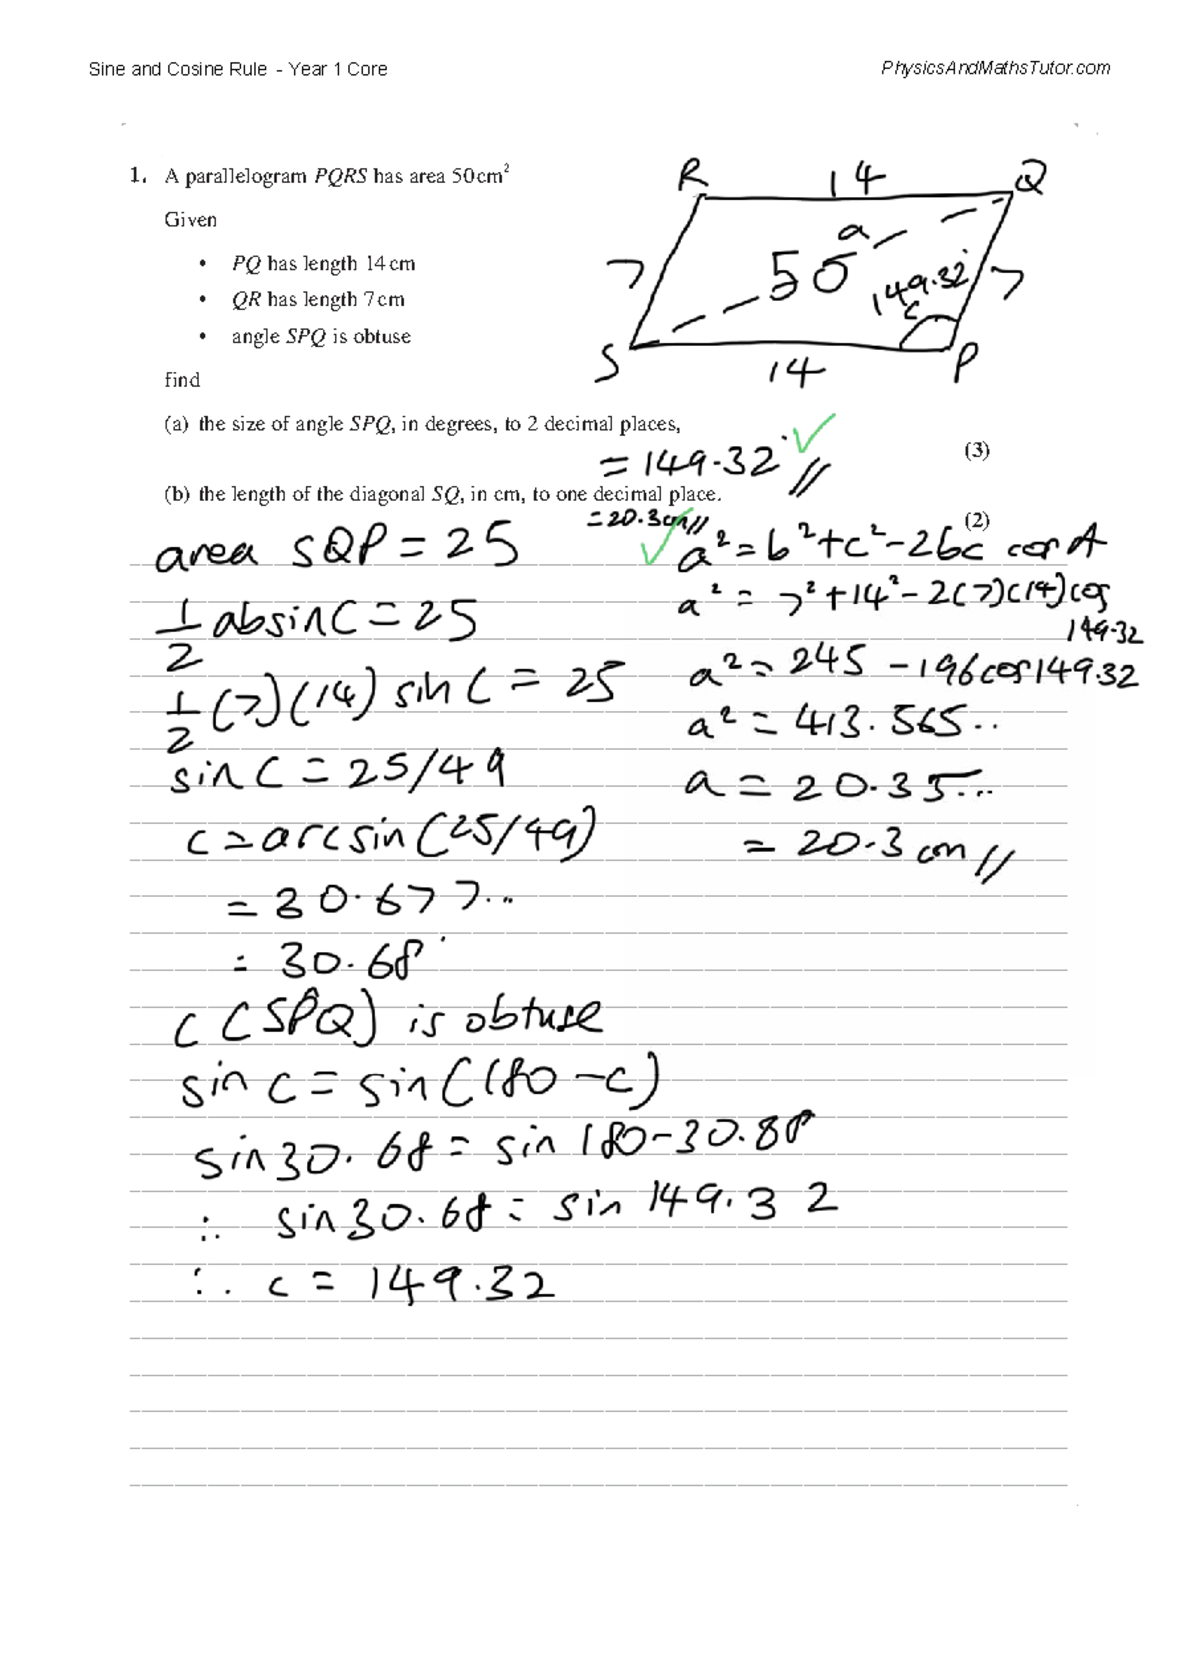 Sine and Cosine Rule - Year 1 Core
PhysicsAndMathsTutor.com
1. A parallelogram PQRS has area 50 cm²
Given
• PQ has length 14 cm
• QR has length 7 cm
• angle SPQ is obtuse
find
(a) the size of angle SPQ, in degrees, to 2 decimal places,
(3)
= 149.32°//
(b) the length of the diagonal SQ, in cm, to one decimal place.
(2)
= 20.3cm//
R 14 Q
a
7 50 149.32° 7
c
S 14 P
area SQP = 25
1/2 absinC = 25
1/2 (7)(14) sin C = 25
sin C = 25/49
C = arcsin(25/49)
= 30.677...
= 30.68°
C (SP̂Q) is obtuse
sin C = sin(180 - C)
sin30.68 = sin 180-30.88
∴ sin30.68 = sin 149.32
∴ C = 149.32
a² = b² + c² - 2bc cos A
a² = 7² + 14² - 2(7)(14)cos
149.32
a² = 245 - 196cos149.32
a² = 413.565..
a = 20.35...
= 20.3 cm//